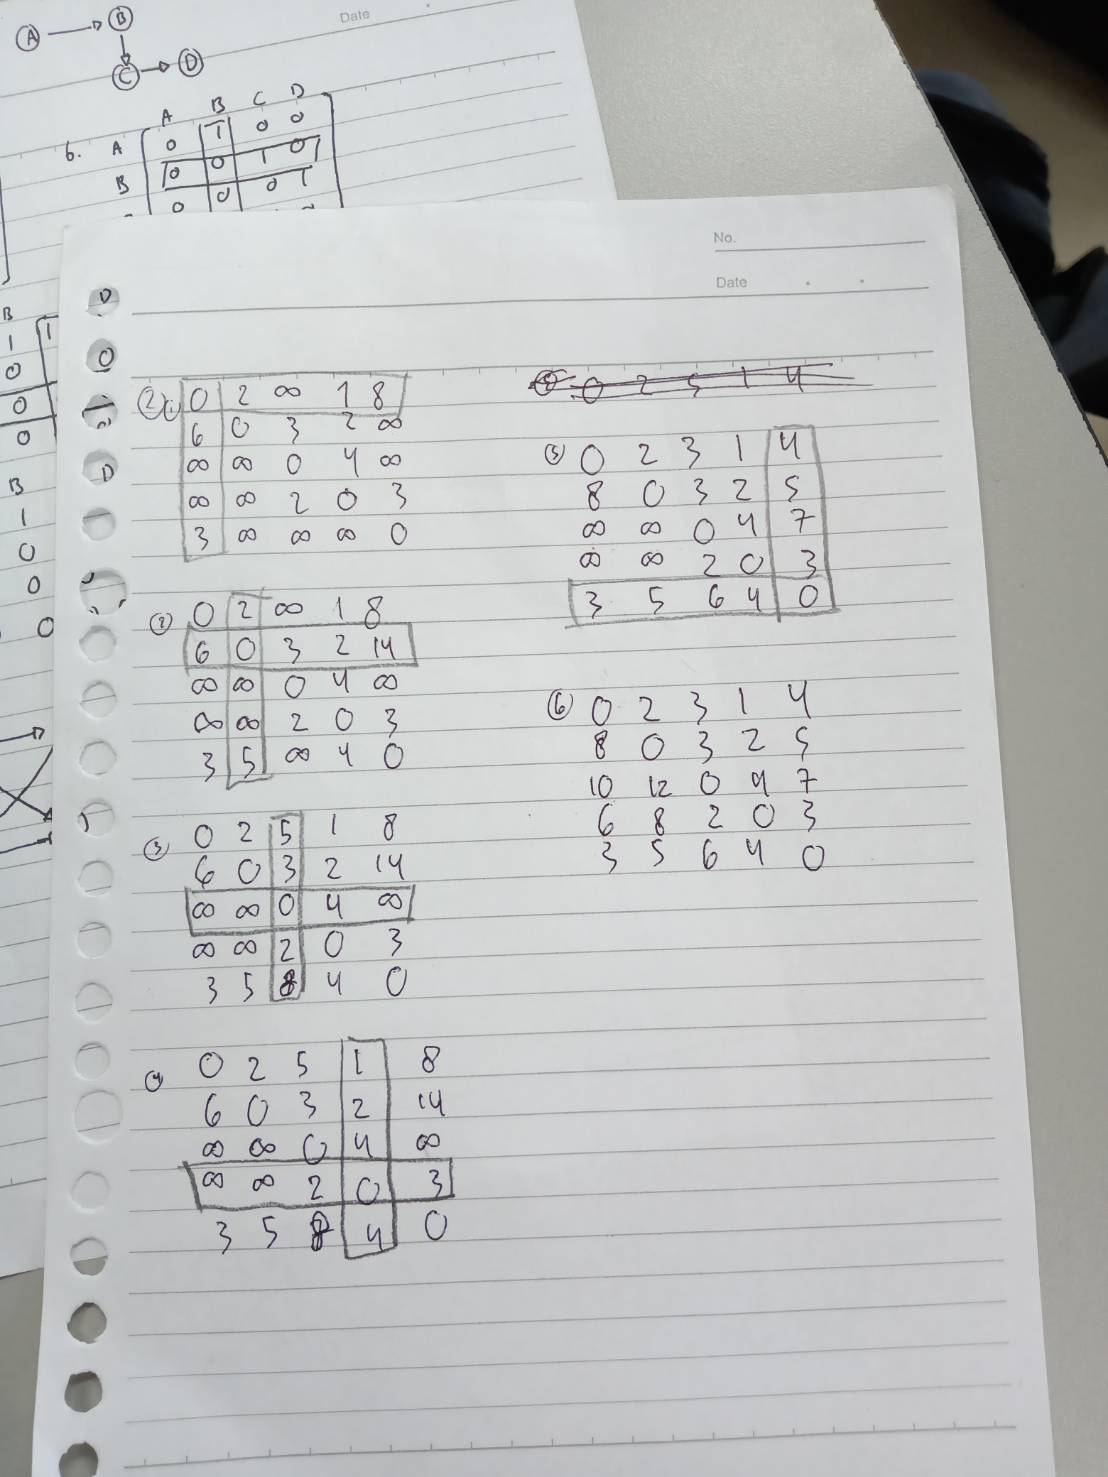 Date
A B
C D
A B C D
6. A 0 1 0 0
B 0 0 1 0
0 0 0 1
B
1 1
0
0
0
B
1
0
0
0
No.
Date
② ① 0 2 ∞ 1 8
6 0 3 2 ∞
∞ ∞ 0 4 ∞
∞ ∞ 2 0 3
3 ∞ ∞ ∞ 0
② 0 2 ∞ 1 8
6 0 3 2 14
∞ ∞ 0 4 ∞
∞ ∞ 2 0 3
3 5 ∞ 4 0
③ 0 2 5 1 8
6 0 3 2 14
∞ ∞ 0 4 ∞
∞ ∞ 2 0 3
3 5 8 4 0
④ 0 2 5 1 8
6 0 3 2 14
∞ ∞ 0 4 ∞
∞ ∞ 2 0 3
3 5 8 4 0
0 2 5 1 4
⑤ 0 2 3 1 4
8 0 3 2 5
∞ ∞ 0 4 7
∞ ∞ 2 0 3
3 5 6 4 0
⑥ 0 2 3 1 4
8 0 3 2 5
10 12 0 4 7
6 8 2 0 3
3 5 6 4 0